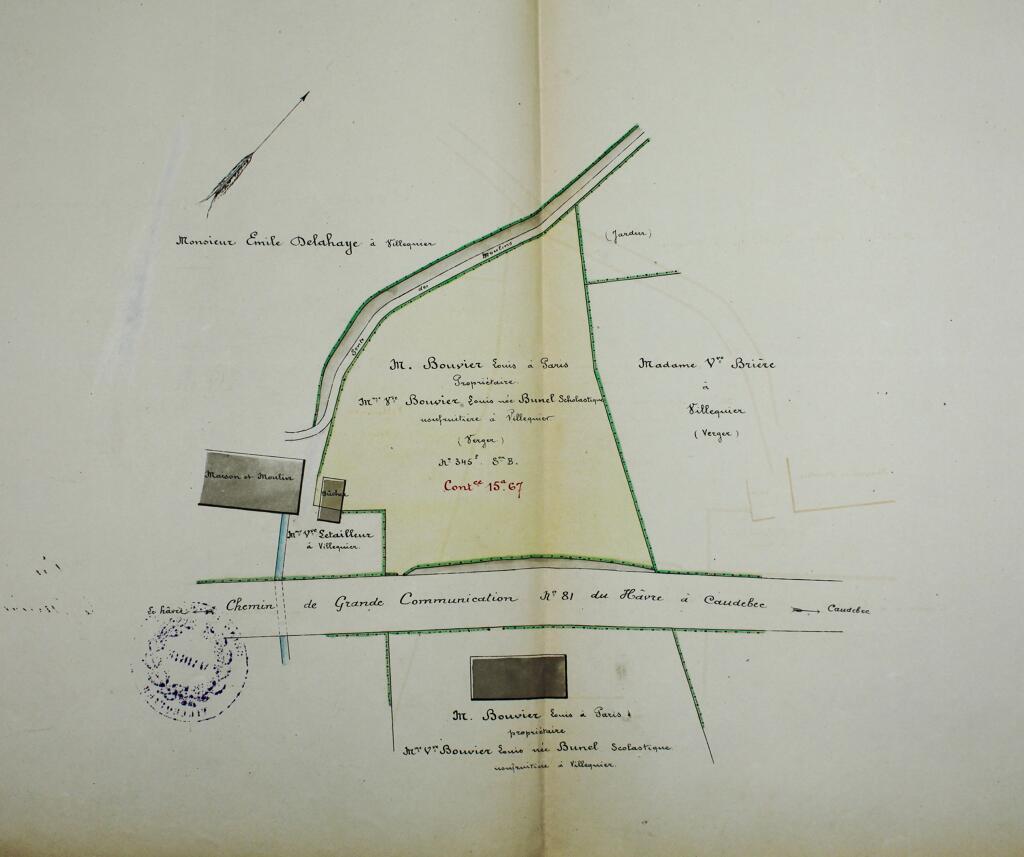 Monsieur Emile Delahaye à Villequier
(Jardin)
Sente des Moulins
M. Bouvier Louis à Paris
Propriétaire.
Mme Vve Bouvier Louis née Bunel Scholastique
usufruitière à Villequier
(Verger)
No 345P. Son B.
Contce 15a.67
Madame Vve Brière
à
Villequier
(Verger)
Maison et Moulin
Bûcher
Mme Vve Letailleur
à Villequier.
Le hâvre
Chemin de Grande Communication No 81 du Hâvre à Caudebec
Caudebec
M. Bouvier Louis à Paris
propriétaire
Mme Vve Bouvier Louis née Bunel Scolastique
usufruitière à Villequier.